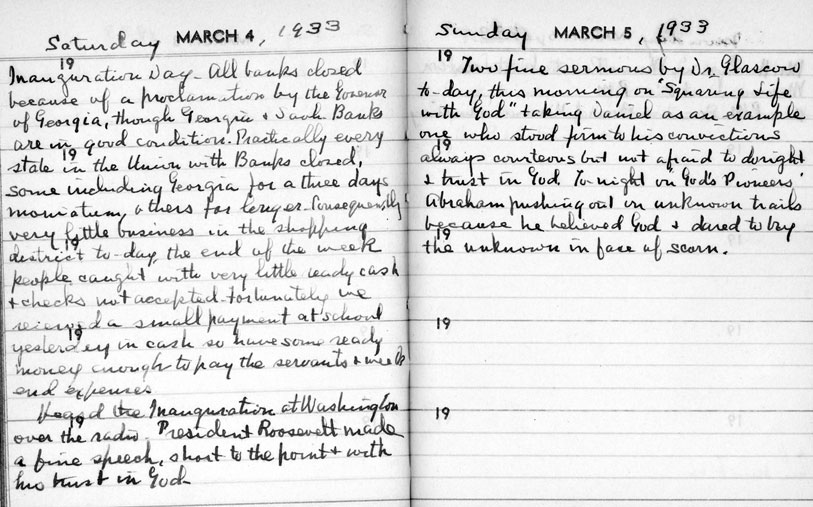 Saturday MARCH 4, 1933
19
Inauguration Day - All banks closed
because of a proclamation by the Governor
of Georgia, though Georgia & Banks
are in good condition. Practically every
19
state in the Union with Banks closed,
some including Georgia for a three days
others for longer. Consequently
very little business in the shopping
19
district to-day, the end of the week
people caught with very little ready cash
& checks not accepted - fortunately we
received a small payment at school
19
yesterday in cash so have some ready
money enough to pay the servants & week
end expenses
Heard the Inauguration at Washington
19
over the radio. President Roosevelt made
a fine speech, short to the point & with
his trust in God -
Sunday MARCH 5, 1933
19
Two fine sermons by Dr. Glascow
to-day, this morning on "Squaring Life
with God" taking Daniel as an example
one who stood firm to his convictions
19
always courteous but not afraid to do right
& trust in God. To-night on "God's Pioneers"
Abraham pushing out in unknown trails
because he believed God & dared to
19
the unknown in face of scorn.
19
19